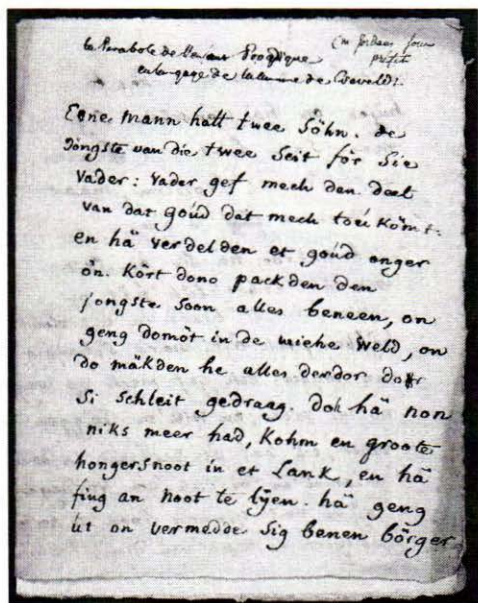 la Parabole de l'enfant Prodigue
en langage de la commune de
Eene Mann hatt twee Söhn. de
Jöngste van die twee seit för sie
vader: vader gef mech den deel
van dat goúd dat mech toú kömt.
en hä verdelden et goúd onger
ön. Kört dono packden den
jongste soon alles beneen, on
geng domöt in de wiehe weld, on
do mäkden he alles derdor dorr
si schleit gedraag. doh hä non
niks meer had, Kohm en groote
hongersnoot in et Lank, en hä
fing an noot te lÿen. hä geng
út on vermedde sig benen börger